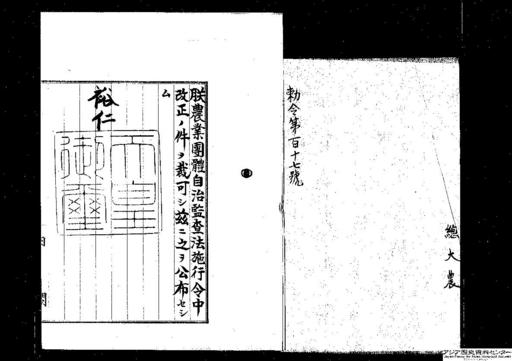 勅令第百十七號
總
大
農
朕農業團體自治監査法施行令中
改正ノ件ヲ裁可シ茲ニ之ヲ公布セシ
ム
裕仁
天皇
御璽
内
閣
アジア歴史資料センター